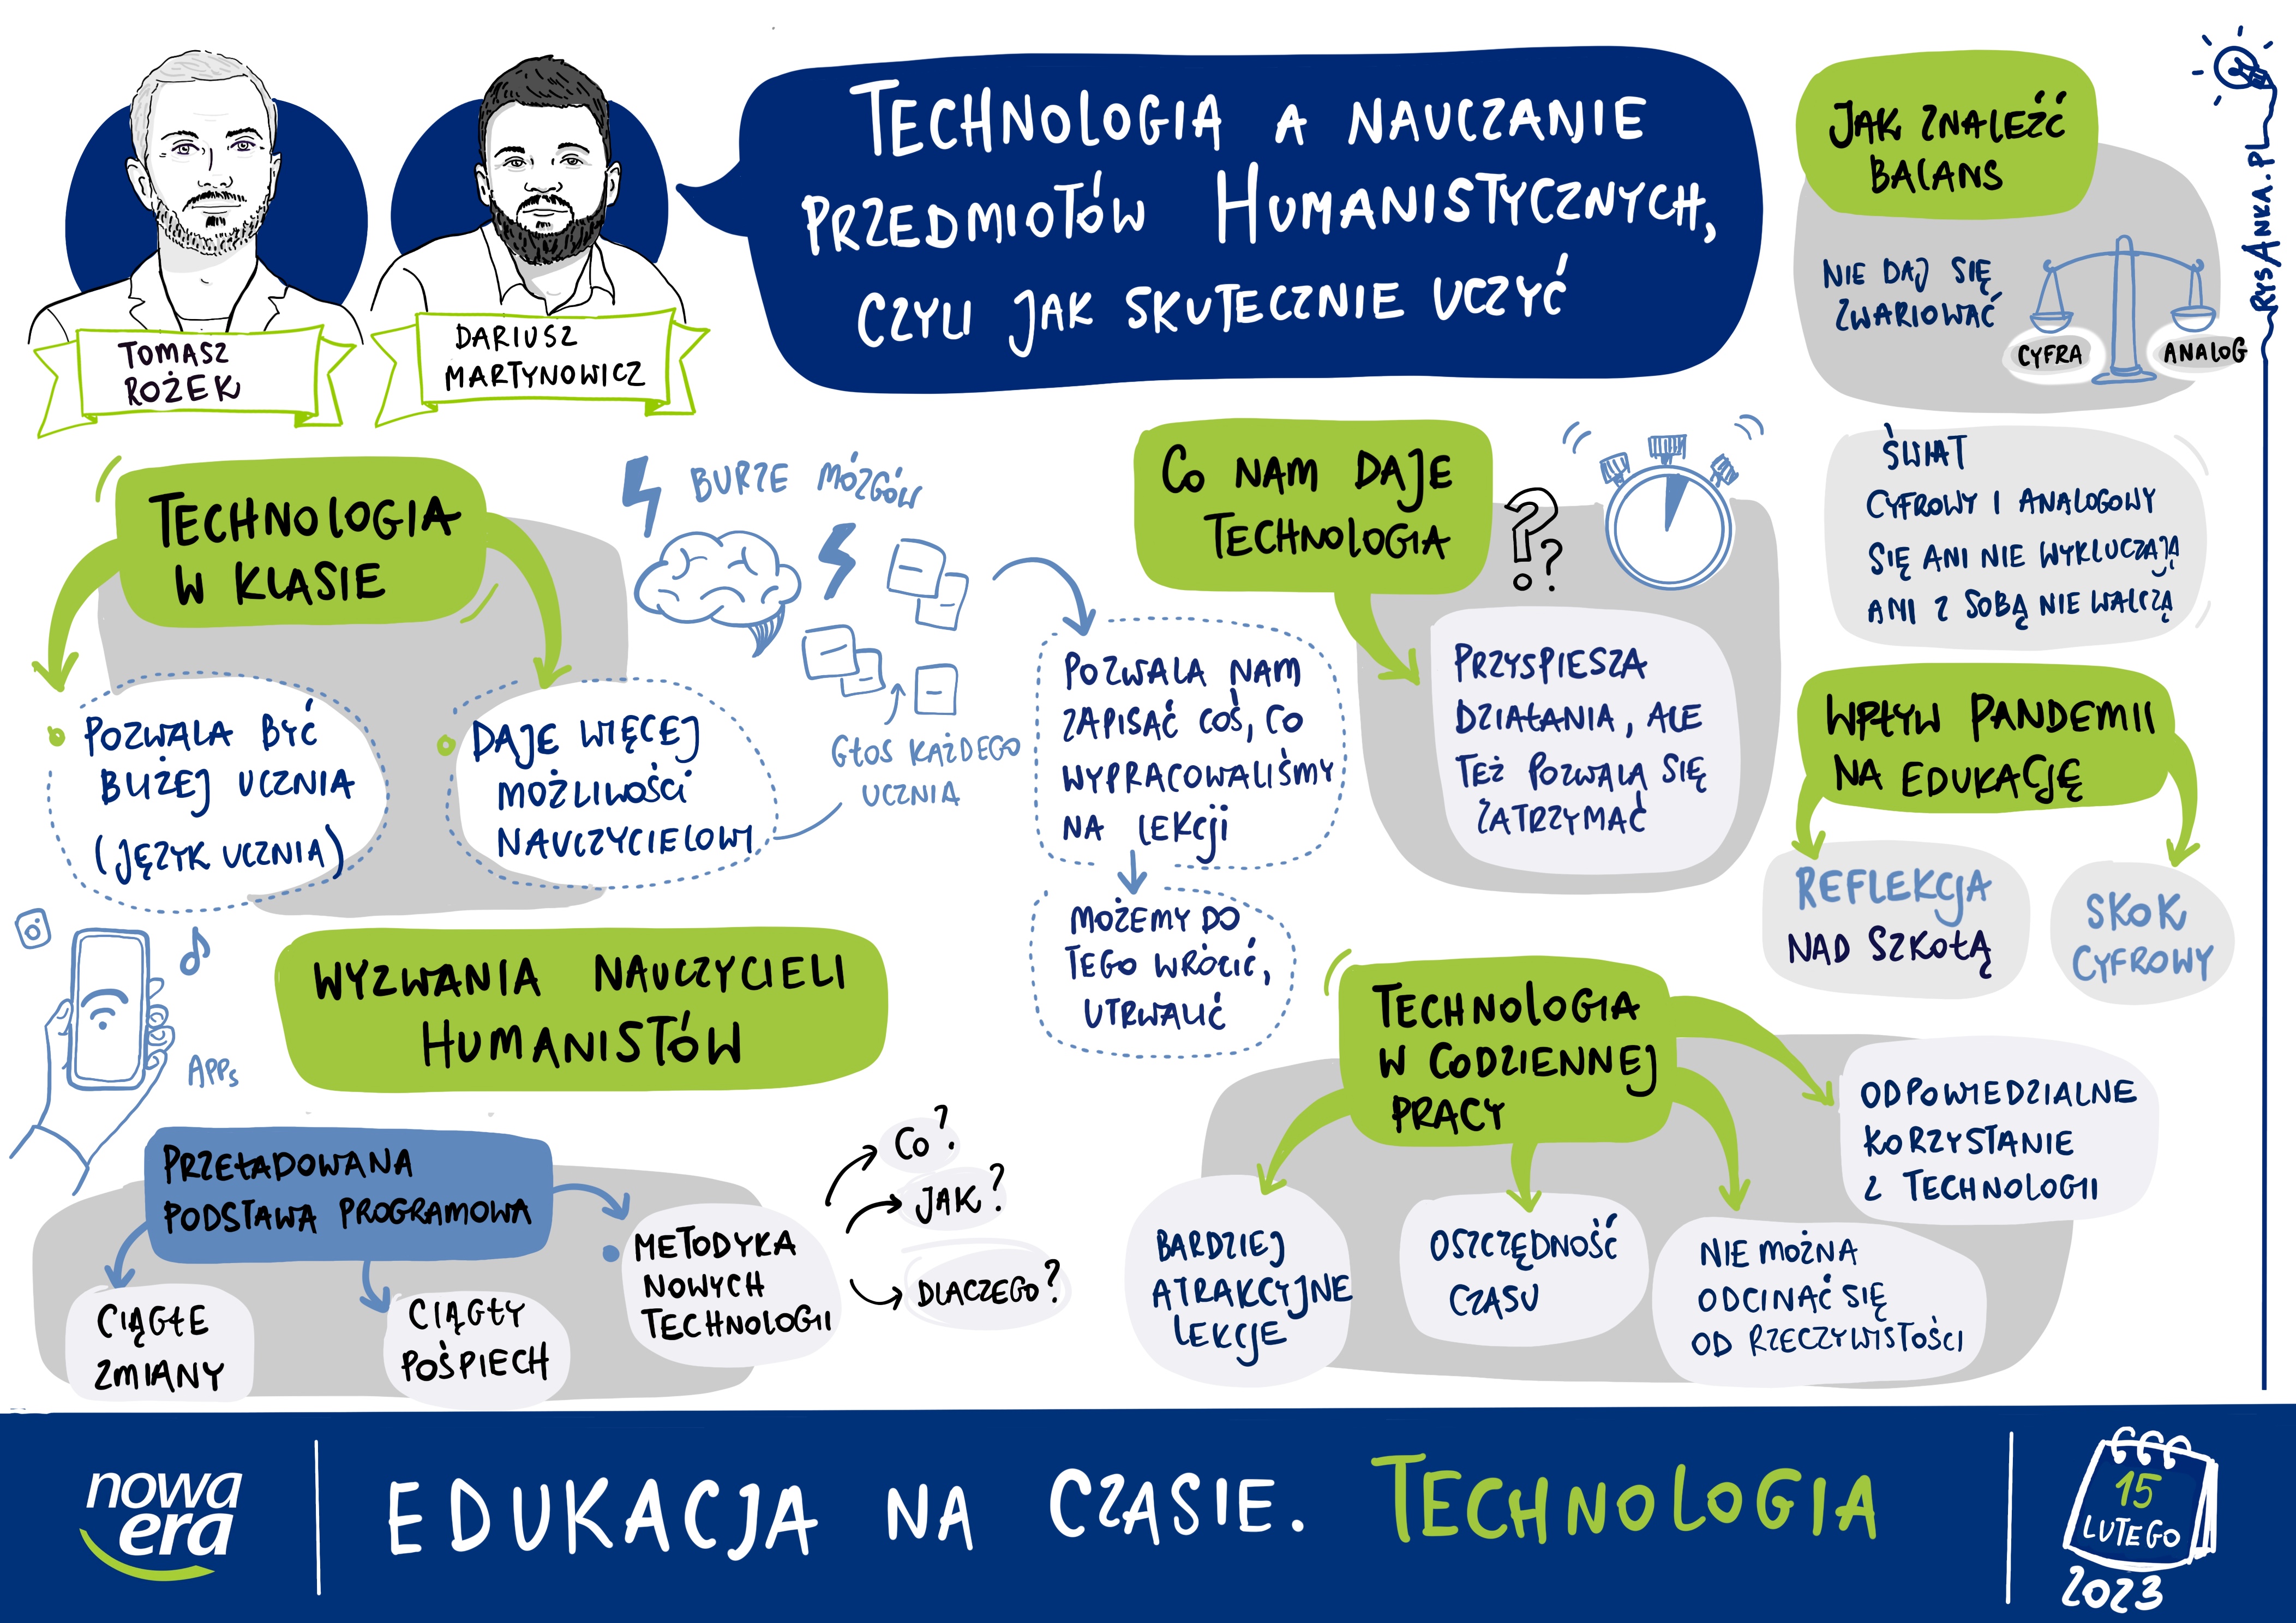 TOMASZ
ROŻEK
DARIUSZ
MARTYNOWICZ
TECHNOLOGIA A NAUCZANIE
PRZEDMIOTÓW HUMANISTYCZNYCH,
CZYLI JAK SKUTECZNIE UCZYĆ
JAK ZNALEŹĆ
BALANS
NIE DAJ SIĘ
ZWARIOWAĆ
CYFRA
ANALOG
RYSANKA.PL
ŚWIAT
CYFROWY I ANALOGOWY
SIĘ ANI NIE WYKLUCZAJĄ
ANI Z SOBĄ NIE WALCZĄ
TECHNOLOGIA
W KLASIE
POZWALA BYĆ
BLIŻEJ UCZNIA
(JĘZYK UCZNIA)
DAJE WIĘCEJ
MOŻLIWOŚCI
NAUCZYCIELOWI
BURZE MÓZGÓW
GŁOS KAŻDEGO
UCZNIA
POZWALA NAM
ZAPISAĆ COŚ, CO
WYPRACOWALIŚMY
NA LEKCJI
MOŻEMY DO
TEGO WRÓCIĆ,
UTRWALIĆ
CO NAM DAJE
TECHNOLOGIA
??
PRZYSPIESZA
DZIAŁANIA, ALE
TEŻ POZWALA SIĘ
ZATRZYMAĆ
WPŁYW PANDEMII
NA EDUKACJĘ
REFLEKCJA
NAD SZKOŁĄ
SKOK
CYFROWY
APPs
WYZWANIA NAUCZYCIELI
HUMANISTÓW
PRZEŁADOWANA
PODSTAWA PROGRAMOWA
CIĄGŁE
ZMIANY
CIĄGŁY
POŚPIECH
METODYKA
NOWYCH
TECHNOLOGII
CO?
JAK?
DLACZEGO?
TECHNOLOGIA
W CODZIENNEJ
PRACY
BARDZIEJ
ATRAKCYJNE
LEKCJE
OSZCZĘDNOŚĆ
CZASU
NIE MOŻNA
ODCINAĆ SIĘ
OD RZECZYWISTOŚCI
ODPOWIEDZIALNE
KORZYSTANIE
Z TECHNOLOGII
nowa
era
EDUKACJA NA CZASIE. TECHNOLOGIA
15
LUTEGO
2023